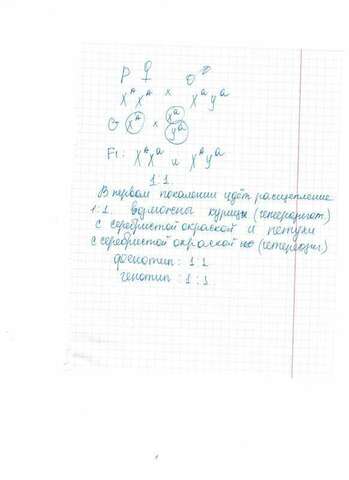 P ♀ ♂
XᴬXᴬ × XᵃYᵃ
G Xᴬ × Xᵃ Yᵃ
F₁: XᴬXᵃ и XᴬYᵃ
1:1
В первом поколении идёт расщепление
1:1. возможны курицы (гетерозигот.)
с серебристой окраской и петухи
с серебристой окраской
фенотип: 1:1
генотип: 1:1